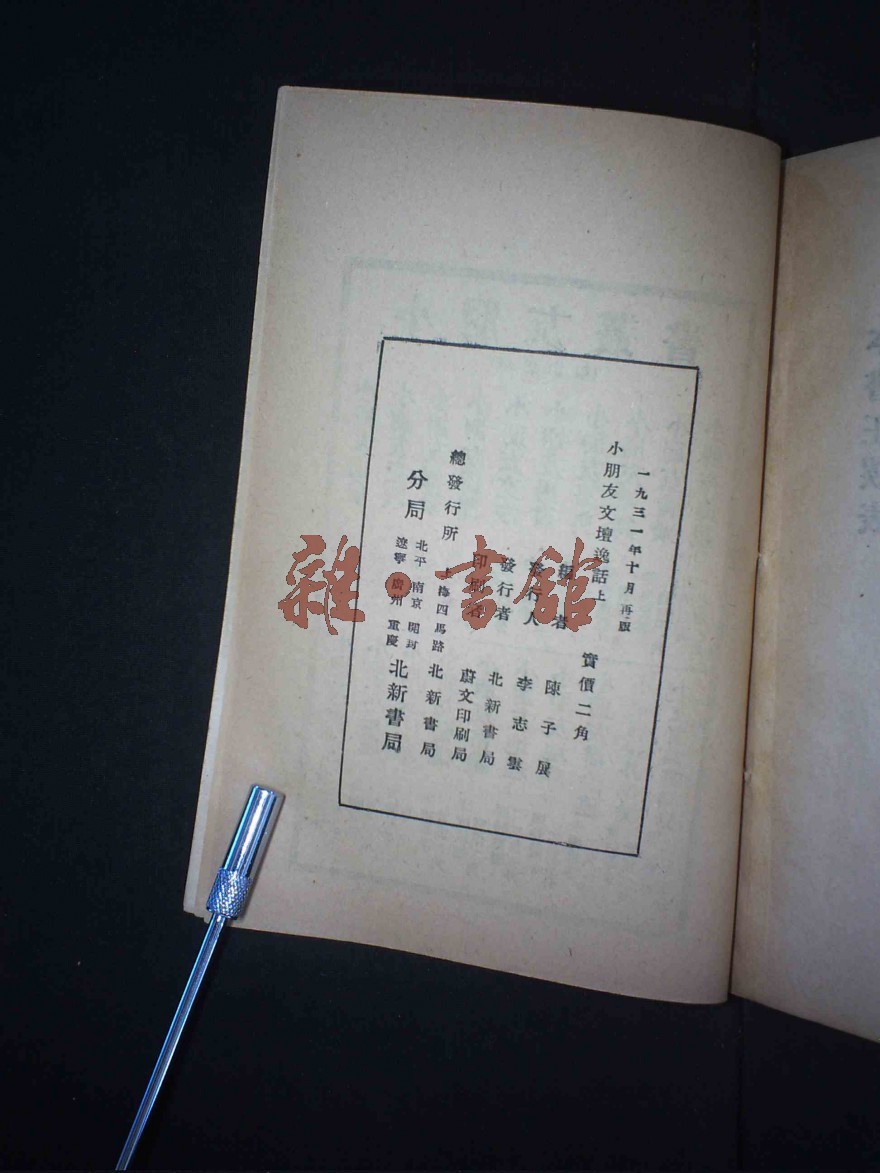 一九三一年十月再版
小朋友文壇逸話上
實價二角
者 陳子展
發行人 李志雲
發行者 北新書局
印刷者 蔚文印刷局
總發行所 上海四馬路 北新書局
分局 北平 南京 開封 遼寧 廣州 重慶 北新書局
雜·書館